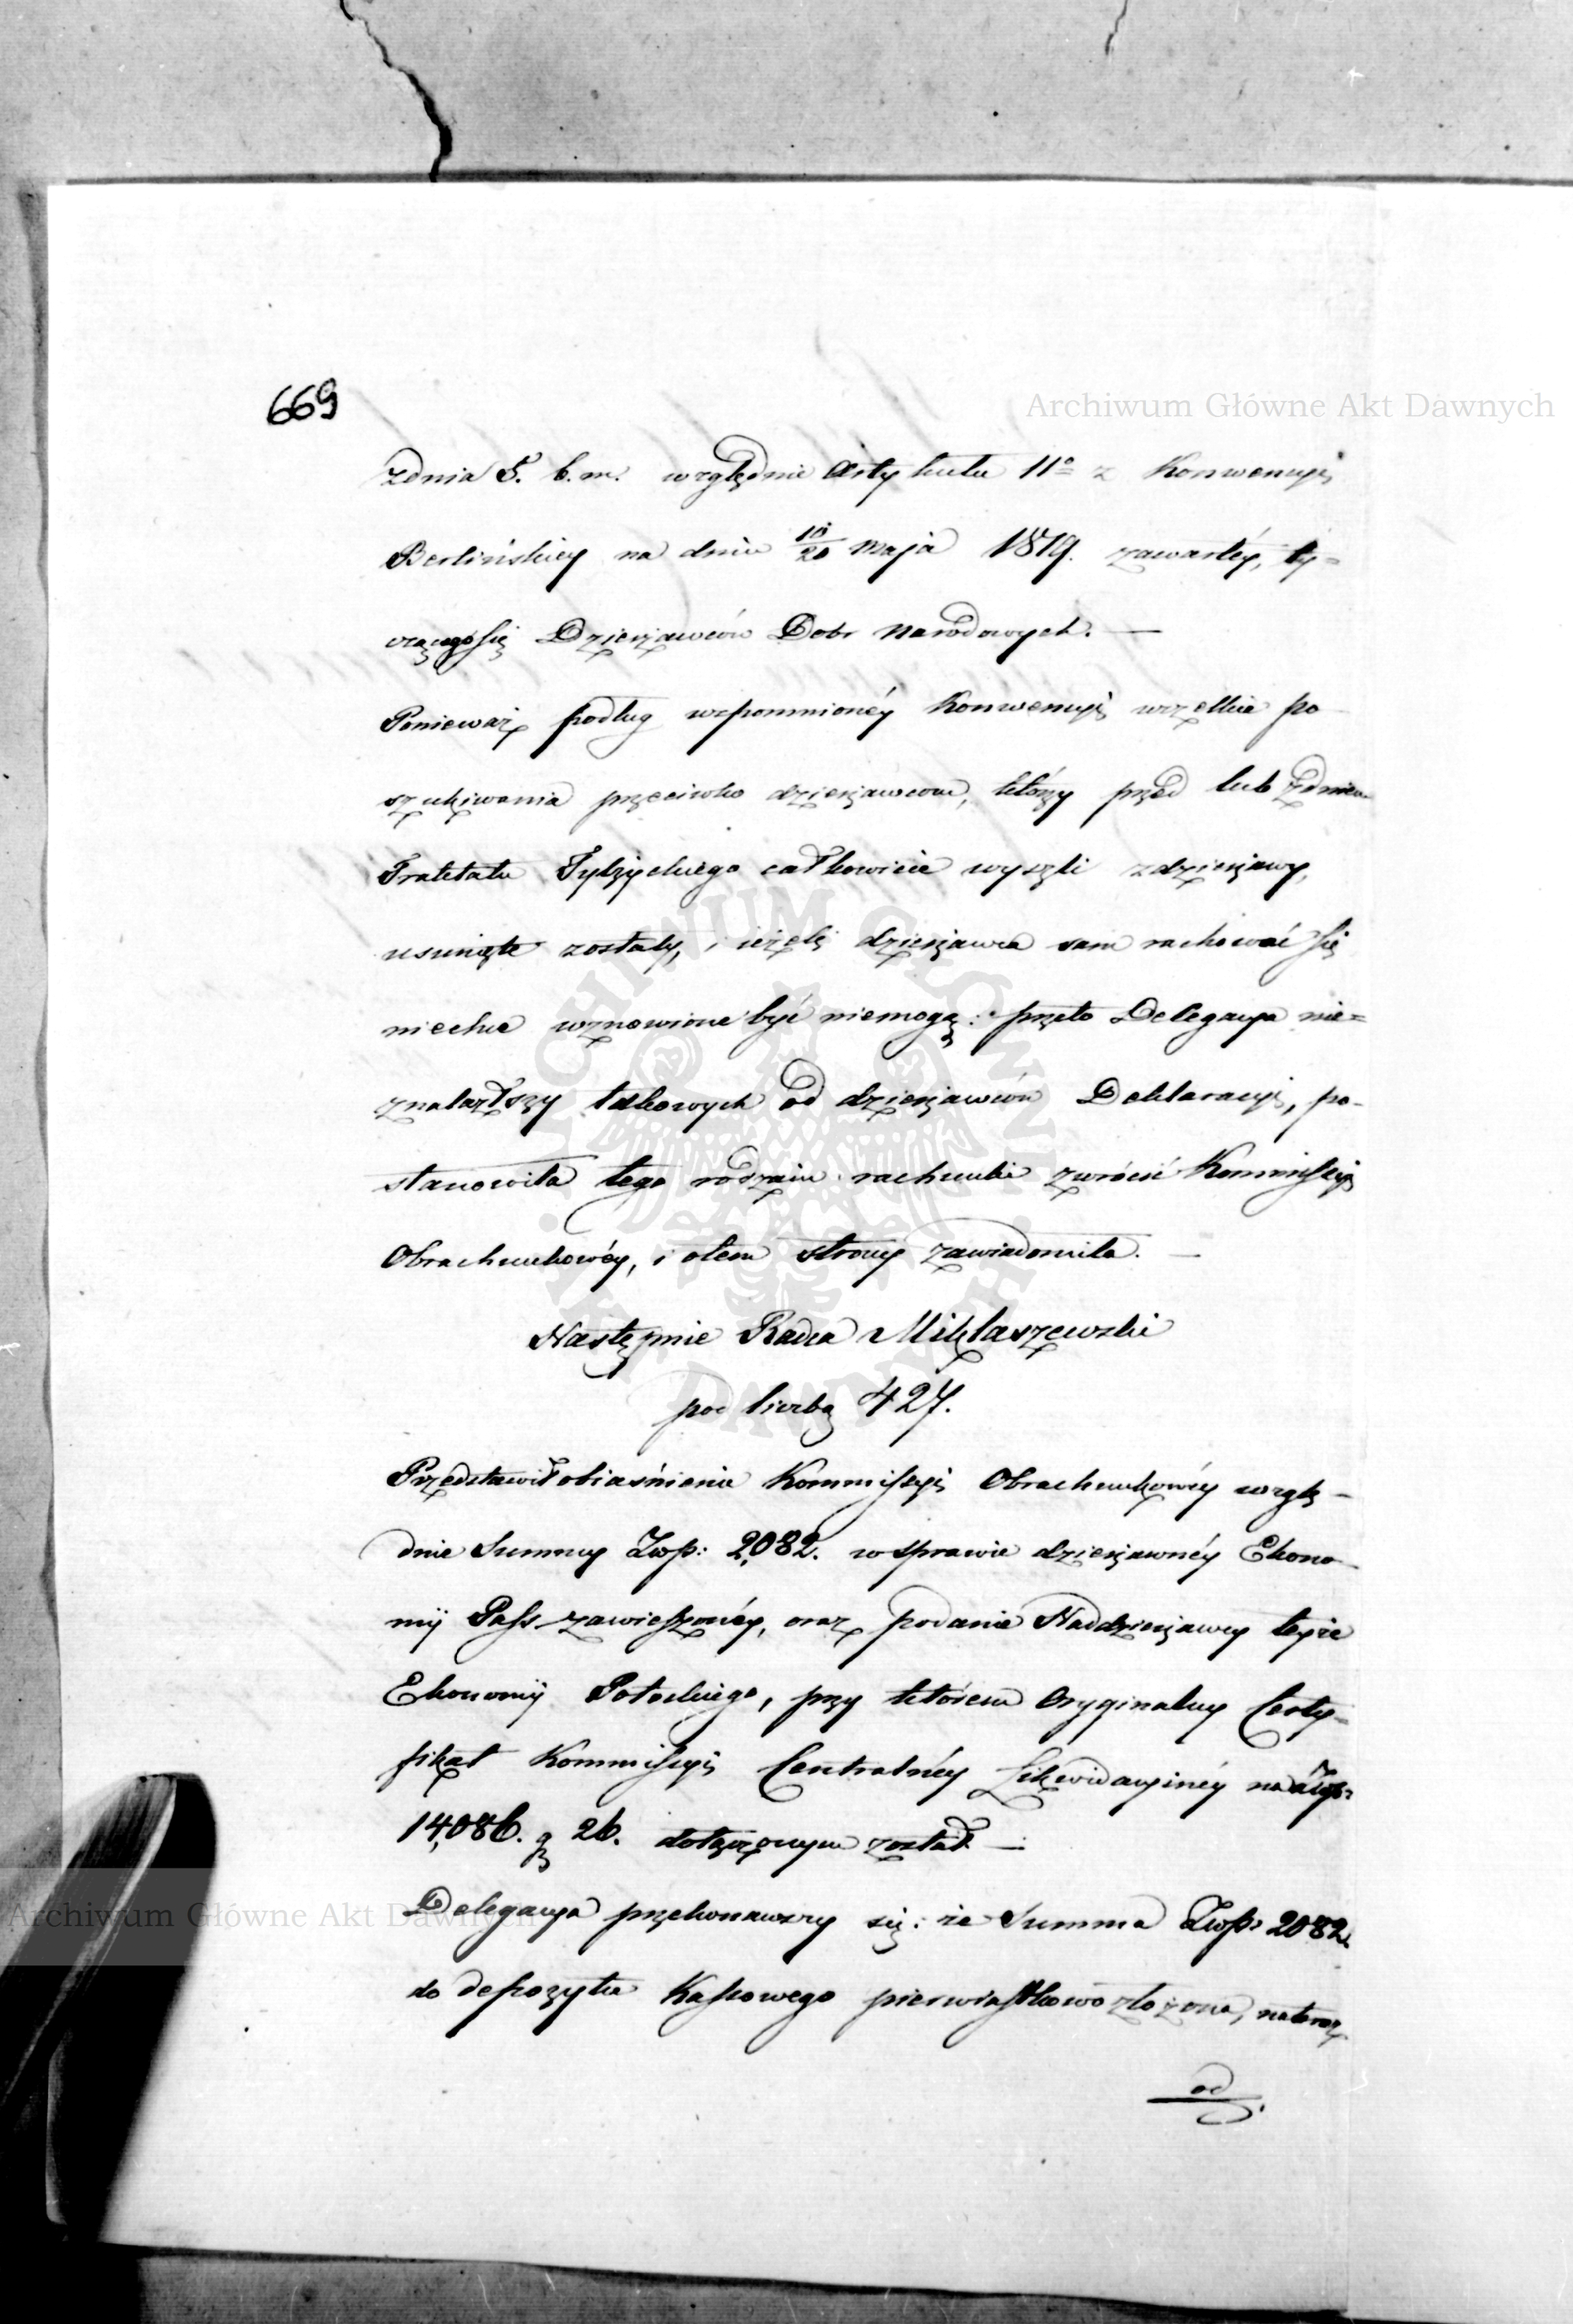 669
Archiwum Główne Akt Dawnych
zdnia 5. b. m. względnie Artykułu 11º z Konwencyi
Berlińskiey na dniu 10/20 Maja 1819. zawartéy, ty=
czącego się Dzierżawców Dobr Narodowych. —
Ponieważ podług wspomnionéy Konwencyi wszelkie po-
szukiwania przeciwko dzierżawcom, którzy przed lub zdniem
Traktatu Tylżyckiego całkowicie wyszli zdzierżawy,
usunięte zostały, i ieżeli dzierżawca sam rachować się
niechce wznowione być niemogą: przeto Delegacya nie=
znalazłszy takowych od dzierżawców Deklaracyi, po-
stanowiła tego rodzaiu rachunki zwrócić Kommissyi
Obrachunkowéy, i otem strony zawiadomiła. —
Następnie Radca Miklaszewski
pod liczbą 427.
Przedstawił obiaśnienie Kommissyi Obrachunkowéy wzglę-
dnie Summy Złwp: 2,082. w sprawie dzierżawnéy Ekono-
mij Pass zawieszonéy, oraz podanie Naddzierżawcy teyże
Ekonomij Potockiego, przy którem Oryginalny Certy-
fikat Kommissyi Centralnéy Likwidacyinéy na Złwp:
14,086. g 26. dołączonym został —
Delegacya przekonawszy się: że Summa Złwp: 2082.
do depozytu Kassowego pierwiastkowo złożona, nateraz
od
Archiwum Główne Akt Dawnych